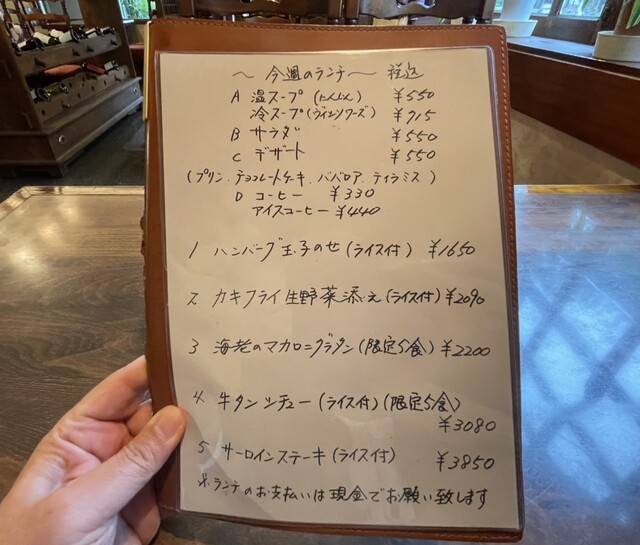 ～ 今週のランチ ～ 税込
A 温スープ (にんじん) ￥550
冷スープ (ヴィシソワーズ) ￥715
B サラダ ￥550
C デザート ￥550
(プリン、チョコレートケーキ、ババロア、ティラミス)
D コーヒー ￥330
アイスコーヒー ￥440
1 ハンバーグ玉子のせ (ライス付) ￥1650
2 カキフライ生野菜添え (ライス付) ￥2090
3 海老のマカロニグラタン (限定5食) ￥2200
4 牛タンシチュー (ライス付) (限定5食)
￥3080
5 サーロインステーキ (ライス付) ￥3850
※ランチのお支払いは現金でお願い致します